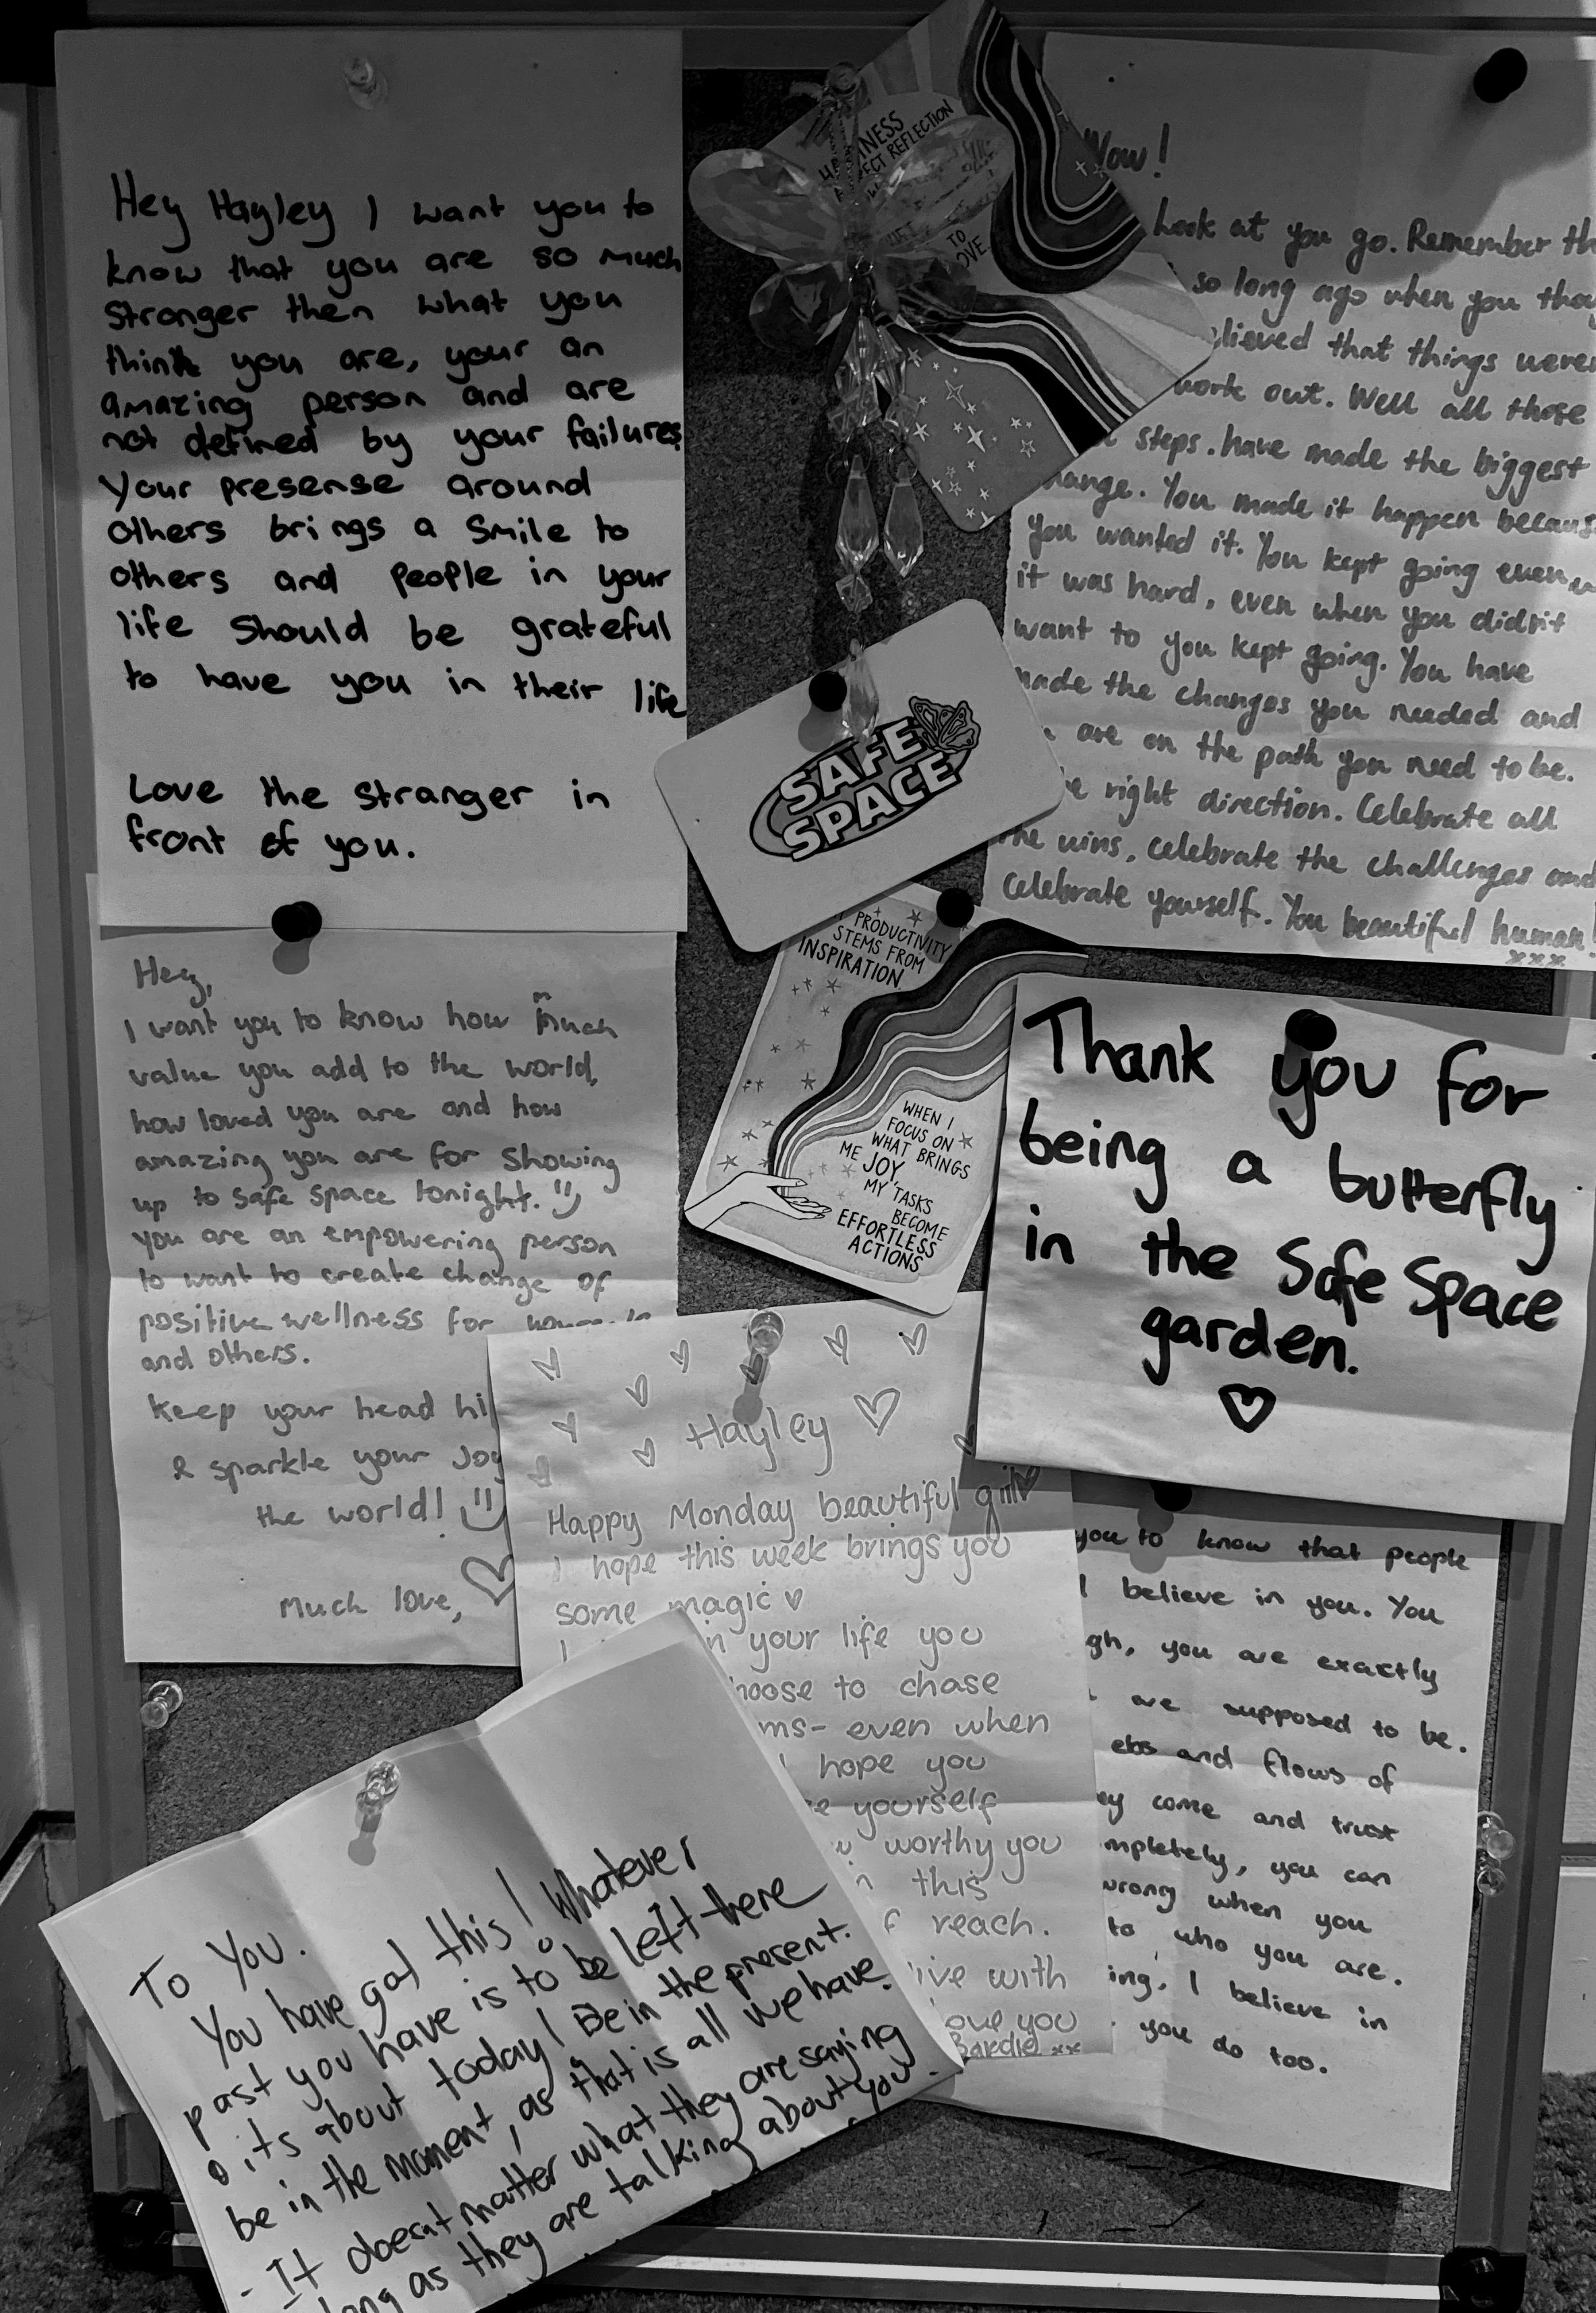 Hey Hayley I want you to
know that you are so much
stronger then what you
think you are, your an
amazing person and are
not defined by your failures
Your presense around
others brings a smile to
others and people in your
life should be grateful
to have you in their life
Love the stranger in
front of you.
REFLECTION
TO
Wow!
Look at you go. Remember
so long ago when you
that things
work out. Well all those
steps. have made the biggest
You made it happen
you wanted it. You kept going even
it was hard, even when you didn't
want to you kept going. You have
made the changes you needed and
are on the path you need to be.
right direction. Celebrate all
the wins, celebrate the challenges and
Celebrate yourself. You beautiful human!
xxx
SAFE
SPACE
PRODUCTIVITY
STEMS FROM
INSPIRATION
WHEN I
FOCUS ON
WHAT BRINGS
ME JOY,
MY TASKS
BECOME
EFFORTLESS
ACTIONS
Hey,
I want you to know how much
value you add to the world,
how loved you are and how
amazing you are for showing
up to safe space tonight.
you are an empowering person
to want to create change of
positive wellness for
and others.
Keep your head
& sparkle your Joy
the world!
Much love,
Thank you for
being a butterfly
in the Safe Space
garden.
Hayley
Happy Monday beautiful girl
I hope this week brings you
some magic
I in your life you
to chase
even when
hope you
yourself
worthy you
this
reach.
with
love you
Bardie xx
you to know that people
I believe in you. You
you are exactly
are supposed to be.
ebs and flows of
come and trust
you can
wrong when you
to who you are.
I believe in
you do too.
To You.
You have got this! Whatever
past you have is to be left there
its about today! Be in the present.
be in the moment, as that is all we have.
- It doesnt matter what they are saying
long as they are talking about you.